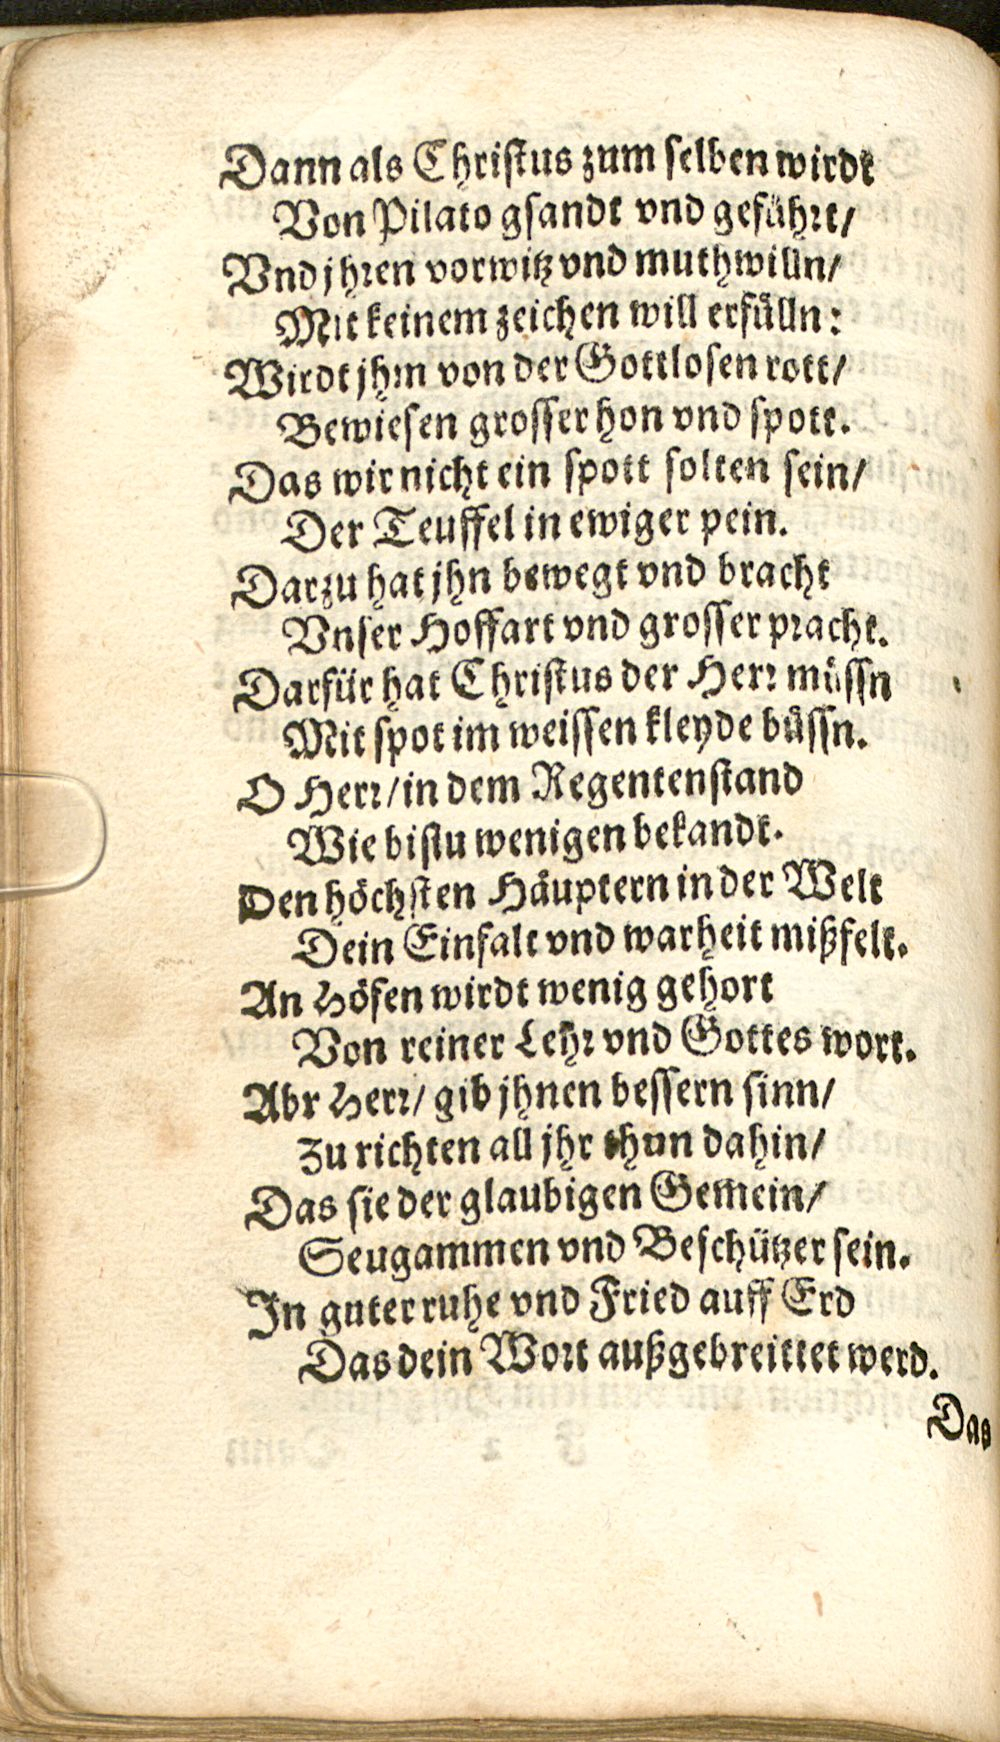 Dann als Christus zum selben wirdt
Von Pilato gsandt vnd geführt/
Vnd jhren vorwitz vnd muthwilln/
Mit keinem zeichen will erfülln:
Wirdt jhm von der Gottlosen rott/
Bewiesen grosser hon vnd spott.
Das wir nicht ein spott solten sein/
Der Teuffel in ewiger pein.
Darzu hat jhn bewegt vnd bracht
Vnser Hoffart vnd grosser pracht.
Darfür hat Christus der Herr müssn
Mit spot im weissen kleyde büssn.
O Herr/ in dem Regentenstand
Wie bistu wenigen bekandt.
Den höchsten Häuptern in der Welt
Dein Einfalt vnd warheit mißfelt.
An Höfen wirdt wenig gehort
Von reiner Lehr vnd Gottes wort.
Abr Herr/ gib jhnen bessern sinn/
Zu richten all jhr thun dahin/
Das sie der glaubigen Gemein/
Seugammen vnd Beschützer sein.
In guter ruhe vnd Fried auff Erd
Das dein Wort außgebreittet werd.
Das